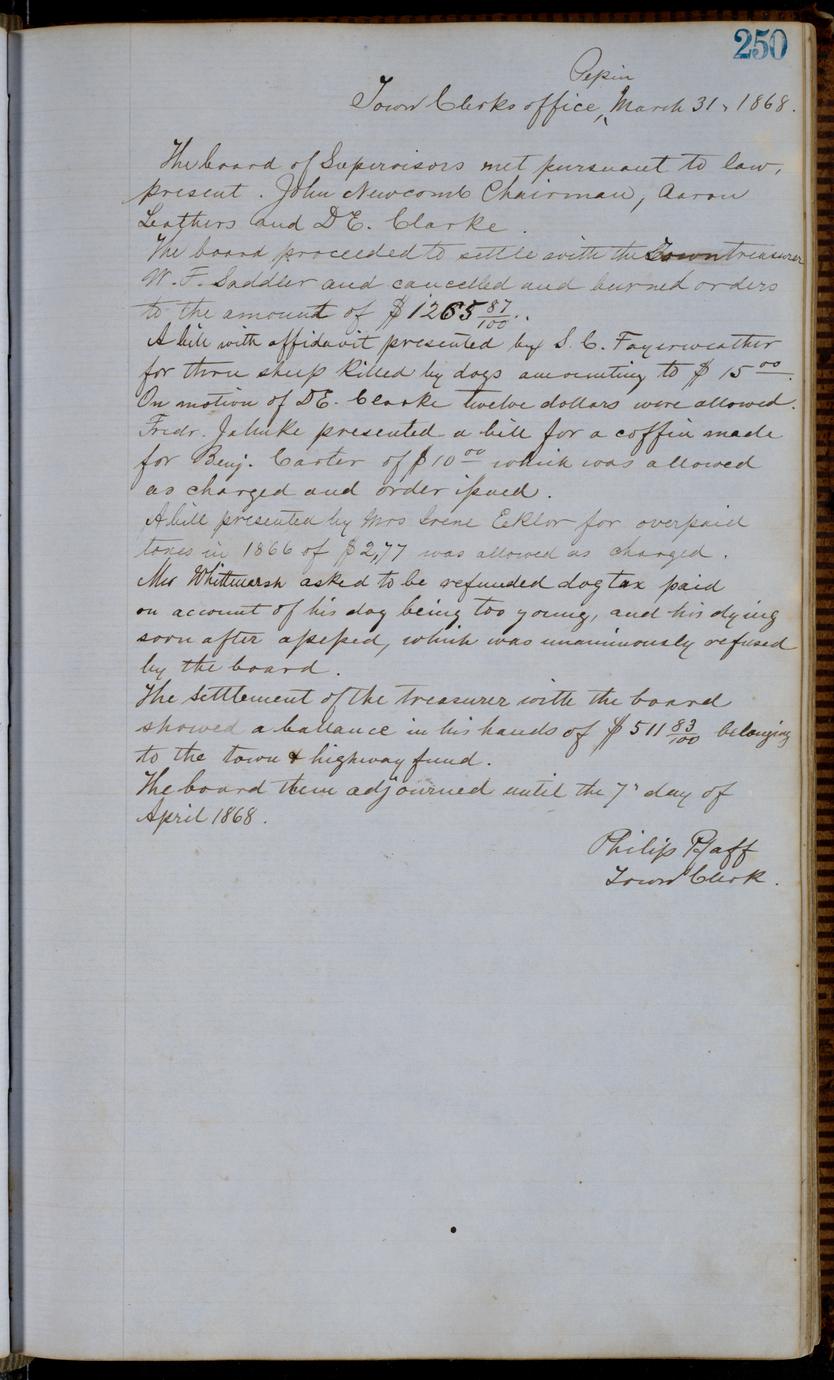 250
Pepin
Town Clerks office, March 31, 1868.
The board of Supervisors met pursuant to law,
present. John Newcomb Chairman, Aaron
Leathers and D.E. Clarke.
The board proceeded to settle with the Town treasurer
W. F. Saddler and cancelled and burned orders
to the amount of $1265 87/100.
A bill with affidavit presented by S. C. Fayerweather
for three sheep killed by dogs amounting to $ 15 00.
On motion of D.E. Clarke twelve dollars were allowed.
Fredr. Jahnke presented a bill for a coffin made
for Benj. Carter of $10 00 which was allowed
as charged and order issued.
A bill presented by Mrs Irene Ecklor for overpaid
taxes in 1866 of $2,77 was allowed as charged.
Mr Whitmarsh asked to be refunded dog tax paid
on account of his dog being too young, and his dying
soon after assessed, which was unanimously refused
by the board.
The settlement of the treasurer with the board
showed a ballance in his hands of $ 511 83/100 belonging
to the town & highway fund.
The board them adjourned until the 7' day of
April 1868.
Philip Pfaff
Town Clerk.